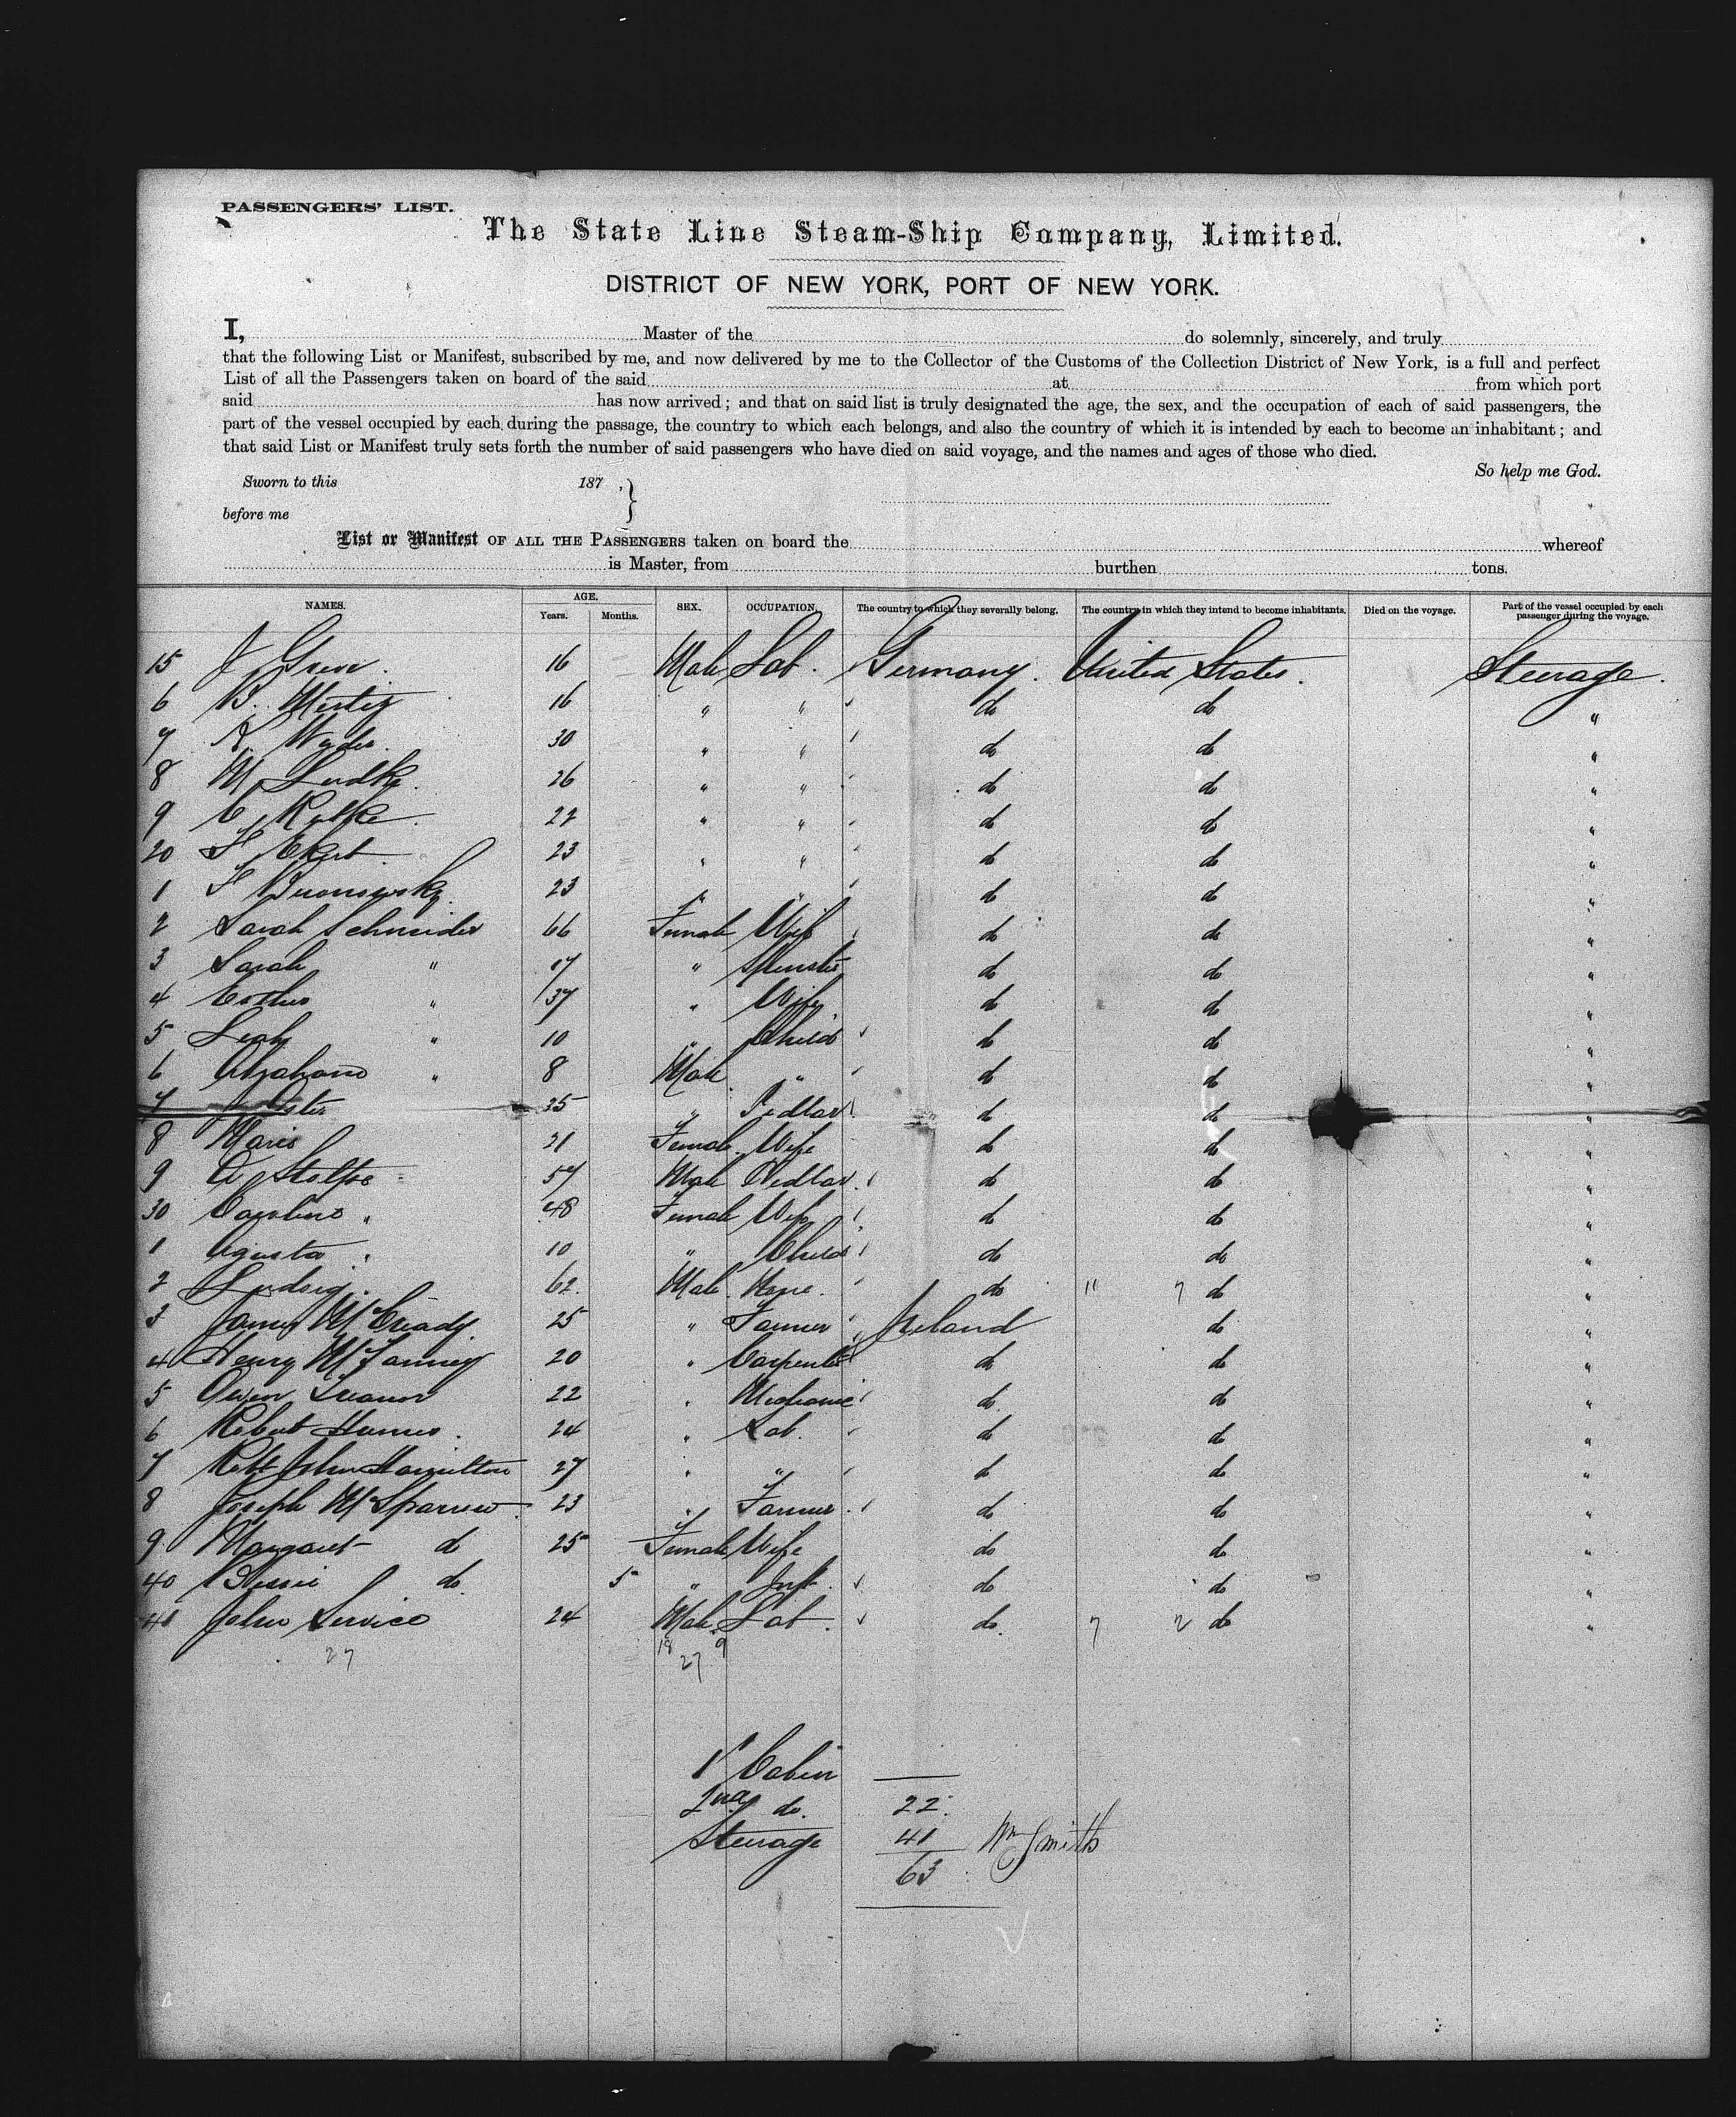 PASSENGERS' LIST.
The State Line Steam-Ship Company, Limited.
DISTRICT OF NEW YORK, PORT OF NEW YORK.
I, Master of the do solemnly, sincerely, and truly
that the following List or Manifest, subscribed by me, and now delivered by me to the Collector of the Customs of the Collection District of New York, is a full and perfect
List of all the Passengers taken on board of the said at from which port
said has now arrived; and that on said list is truly designated the age, the sex, and the occupation of each of said passengers, the
part of the vessel occupied by each during the passage, the country to which each belongs, and also the country of which it is intended by each to become an inhabitant; and
that said List or Manifest truly sets forth the number of said passengers who have died on said voyage, and the names and ages of those who died.
So help me God.
Sworn to this 187 ,
before me
List or Manifest OF ALL THE PASSENGERS taken on board the whereof
is Master, from burthen tons.
NAMES. AGE. Years. Months. SEX. OCCUPATION. The country to which they severally belong. The country in which they intend to become inhabitants. Died on the voyage. Part of the vessel occupied by each passenger during the voyage.
15 J 16 Male Lab. Germany. United States. Steerage.
6 B. 16 " " do do "
7 30 " " do do "
8 M Ludke 26 " " do do "
9 C 22 " " do do "
20 23 " " do do "
1 23 " " do do "
2 Sarah Schneider 66 Female Wife do do "
3 Sarah " 17 " Spinster do do "
4 Esther " 37 " Wife do do "
5 Leah " 10 " Child do do "
6 Abraham " 8 Male " do do "
7 35 " Pedlar do do "
8 Marie 21 Female Wife do do "
9 A Stolpe 57 Male Pedlar do do "
30 Caroline " 48 Female Wife do do "
1 Agusta " 10 " Child do do "
2 Ludwig 62 Male None. do " 7 do "
3 James McCready. 25 " Farmer Ireland do "
4 Henry 20 " Carpenter do do "
5 Owen 22 " Mechanic do do "
6 Robert 24 " Lab. do do "
7 Robt John Hamilton 27 " " do do "
8 Joseph McSparrow 23 " Farmer do do "
9 Margaret do 25 Female Wife do do "
40 Bessie do 5 " Inft. do do "
41 John Service 24 Male Lab. do. 7 2 do "
27 18 9
27
1st Cabin —
2nd do. 22.
Steerage 41 Wm Smith
63